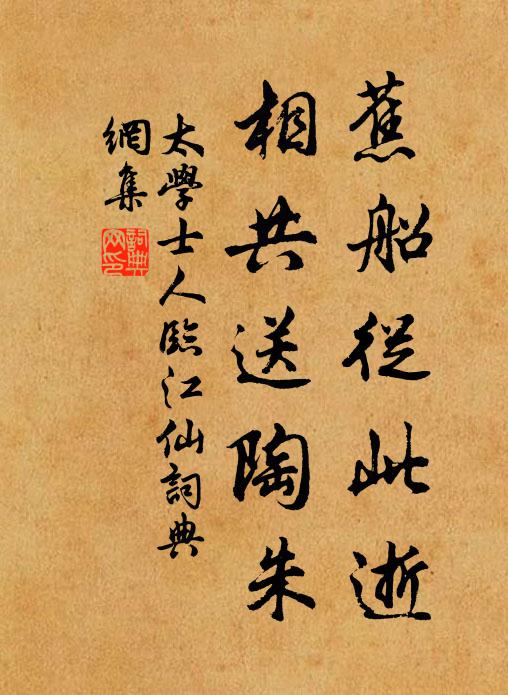 蕉船從此逝
相共送陶朱
太學士人臨江仙詞典
網集
詞典網印